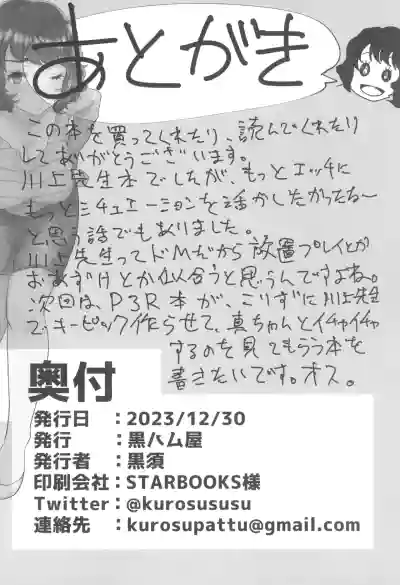 あとがき
この本を買ってくれたり、読んでくれたり
してありがとうございます。
川上先生本でしたが、もっとエッチに
もっとシチュエーションを活かしたかったな〜
と思う話でもありました。
川上先生ってドMだから放置プレイとか
おあずけとか似合うと思うんですよね。
次回は、P3R本か、こりずに川上先生
でキーピック作らせて、真ちゃんとイチャイチャ
するのを見てもらう本を
書きたいです。オス。
奥付
発行日 :2023/12/30
発行 :黒ハム屋
発行者 :黒須
印刷会社:STARBOOKS様
Twitter :@kurosususu
連絡先 :kurosupattu@gmail.com